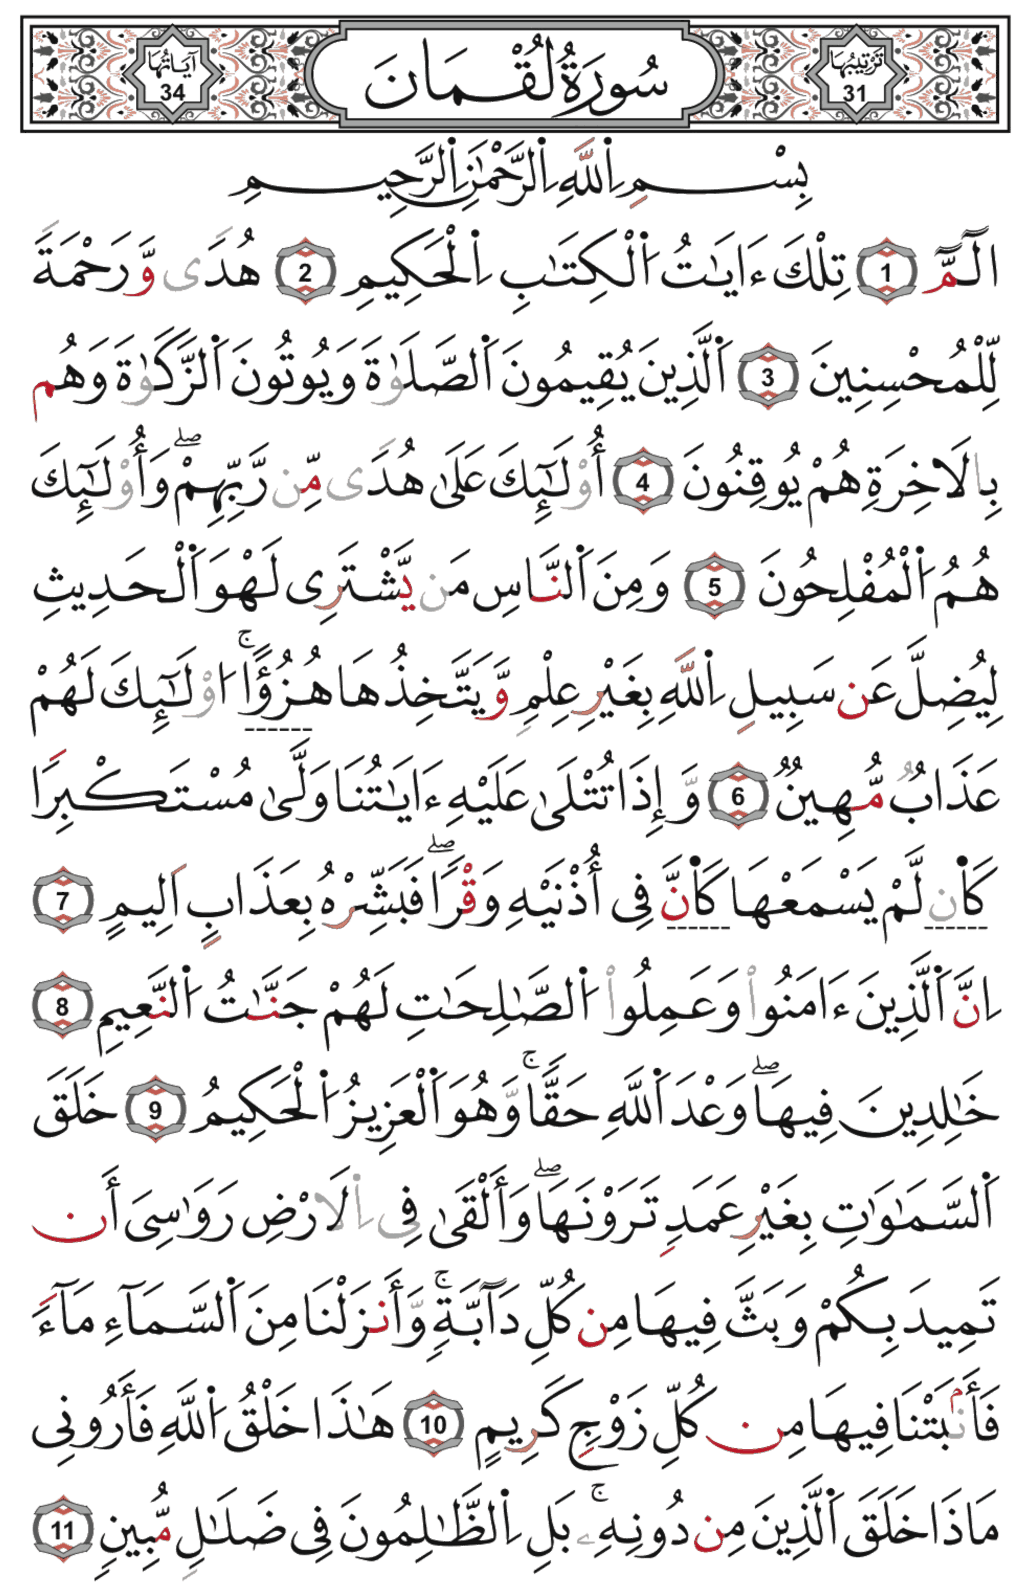 ترتيبها 31 سُورَةُ لُقْمَانَ آياتها 34
بِسْمِ اِ۬للَّهِ اِ۬لرَّحْمَٰنِ اِ۬لرَّحِيمِ
أَلَٓمِّٓۖ 1 تِلْكَ ءَايَٰتُ اُ۬لْكِتَٰبِ اِ۬لْحَكِيمِ 2 هُدٗى وَّرَحْمَةٗ
لِّلْمُحْسِنِينَ 3 اَ۬لَّذِينَ يُقِيمُونَ اَ۬لصَّلَوٰةَ وَيُوتُونَ اَ۬لزَّكَوٰةَ وَهُم
بِالَاخِرَةِ هُمْ يُوقِنُونَ 4 أُوْلَٰٓئِكَ عَلَىٰ هُدٗى مِّن رَّبِّهِمْۖ وَأُوْلَٰٓئِكَ
هُمُ اُ۬لْمُفْلِحُونَ 5 وَمِنَ اَ۬لنَّاسِ مَنْ يَّشْتَرِى لَهْوَ اَ۬لْحَدِيثِ
لِيُضِلَّ عَن سَبِيلِ اِ۬للَّهِ بِغَيْرِ عِلْمٖ وَّيَتَّخِذُهَا هُزُؤًاۚ ا۟وْلَٰٓئِكَ لَهُمْ
عَذَابٞ مُّهِينٞ 6 وَّإِذَا تُتْلَىٰ عَلَيْهِ ءَايَٰتُنَا وَلَّىٰ مُسْتَكْبِرٗا
كَأَن لَّمْ يَسْمَعْهَا كَأَنَّ فِى أُذْنَيْهِ وَقْرٗاۖ فَبَشِّرْهُ بِعَذَابٍ اَلِيمٍ 7
اِنَّ اَ۬لَّذِينَ ءَامَنُواْ وَعَمِلُواْ اُ۬لصَّٰلِحَٰتِ لَهُمْ جَنَّٰتُ اُ۬لنَّعِيمِ 8
خَٰلِدِينَ فِيهَاۖ وَعْدَ اَ۬للَّهِ حَقّٗاۚ وَّهُوَ اَ۬لْعَزِيزُ اُ۬لْحَكِيمُ 9 خَلَقَ
اَ۬لسَّمَٰوَٰتِ بِغَيْرِ عَمَدٖ تَرَوْنَهَاۖ وَأَلْقَىٰ فِى اِ۬لَارْضِ رَوَٰسِىَ أَن
تَمِيدَ بِكُمْ وَبَثَّ فِيهَا مِن كُلِّ دَآبَّةٖۚ وَّأَنزَلْنَا مِنَ اَ۬لسَّمَآءِ مَآءٗ
فَأَنۢبَتْنَا فِيهَا مِن كُلِّ زَوْجٖ كَرِيمٍ 10 هَٰذَا خَلْقُ اُ۬للَّهِ فَأَرُونِى
مَاذَا خَلَقَ اَ۬لَّذِينَ مِن دُونِهِۦۚ بَلِ اِ۬لظَّٰلِمُونَ فِى ضَلَٰلٖ مُّبِينٖ 11